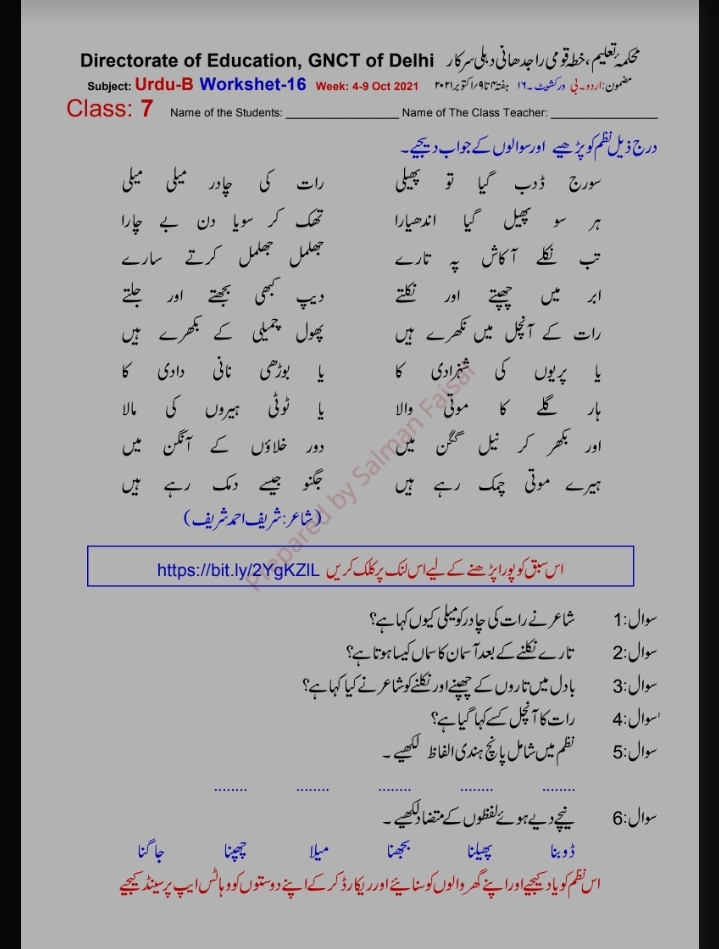 Directorate of Education, GNCT of Delhi محکمۂ تعلیم، خطۂ قومی راجدھانی دہلی سرکار
Subject: Urdu-B Workshet-16 Week: 4-9 Oct 2021 مضمون: اردو۔بی ورکشیٹ ۔۱۶ ہفتہ ۴ تا ۹/اکتوبر ۲۰۲۱
Class: 7 Name of the Students: ____________________ Name of The Class Teacher: ___________________
درج ذیل نظم کو پڑھیے اور سوالوں کے جواب دیجیے۔
سورج ڈدب گیا تو پھیلی رات کی چادر میلی میلی
ہر سو پھیل گیا اندھیارا تھک کر سویا دن بے چارا
تب نکلے آکاش پہ تارے جھلمل جھلمل کرتے سارے
ابر میں چھپتے اور نکلتے دیپ کبھی بجھتے اور جلتے
رات کے آنچل میں نکھرے ہیں پھول چمیلی کے بکھرے ہیں
یا پریوں کی شہزادی کا یا بوڑھی نانی دادی کا
ہار گلے کا موتی والا یا ٹوٹی ہیروں کی مالا
اور بکھر کر نیل گگن میں دور خلاؤں کے آنگن میں
ہیرے موتی چمک رہے ہیں جگنو جیسے دمک رہے ہیں
(شاعر: شریف احمد شریف)
Prepared by Salman Faisal
اس سبق کو پورا پڑھنے کے لیے اس لنک پر کلک کریں https://bit.ly/2YgKZlL
سوال:1 شاعر نے رات کی چادر کو میلی کیوں کہا ہے؟
سوال:2 تارے نکلنے کے بعد آسمان کا سماں کیسا ہوتا ہے؟
سوال:3 بادل میں تاروں کے چھپنے اور نکلنے کو شاعر نے کیا کہا ہے؟
سوال:4 رات کا آنچل کسے کہا گیا ہے؟
سوال:5 نظم میں شامل پانچ ہندی الفاظ لکھیے ۔
........ ........ ........ ........ ........
سوال:6 نیچے دیے ہوئے لفظوں کے متضاد لکھیے ۔
ڈوبنا پھیلنا بجھنا میلا چھپنا جاگنا
اس نظم کو یاد کیجیے اور اپنے گھر والوں کو سنایئے اور ریکارڈ کر کے اپنے دوستوں کو وہاٹس ایپ پر سینڈ کیجیے